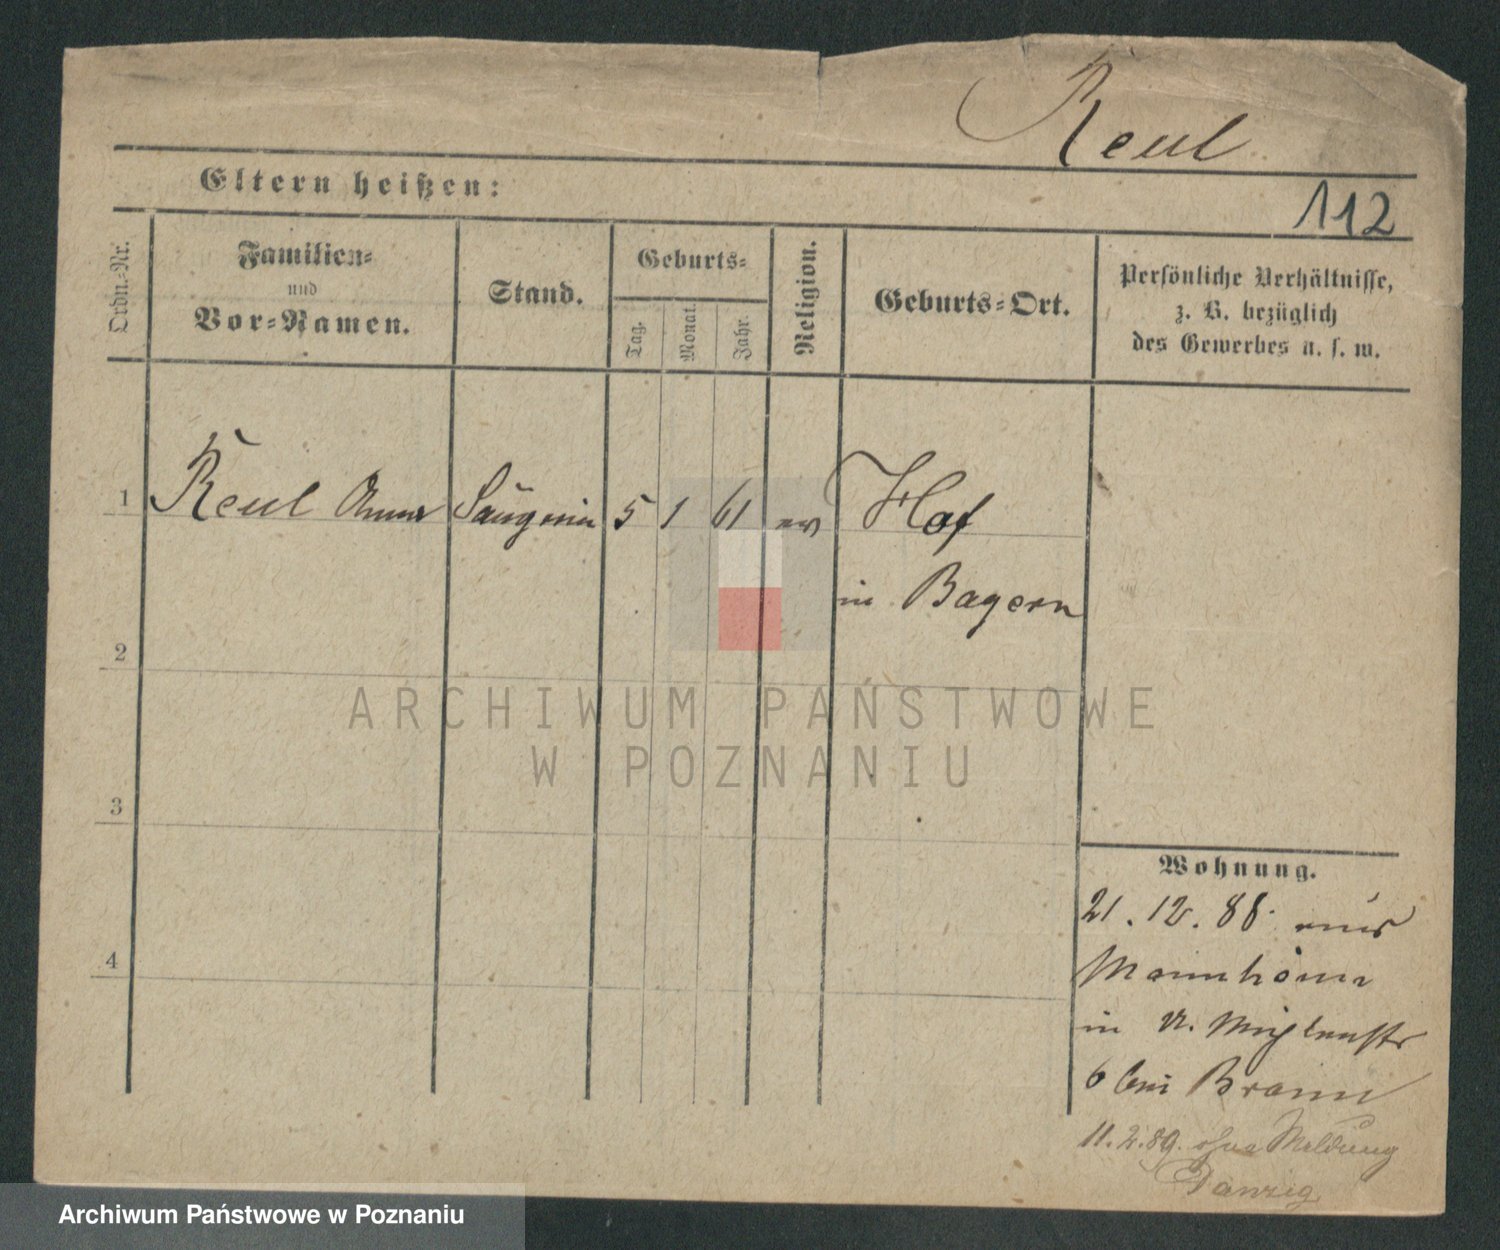 Reul
Eltern heißen:
112
Ordn.-Nr.
Familien-
und
Vor-Namen.
Stand.
Geburts-
Tag.
Monat.
Jahr.
Religion.
Geburts-Ort.
Persönliche Verhältnisse,
z. B. bezüglich
des Gewerbes u. s. w.
1 Reul Anna Sängerin 5 1 61 ev Hof
in Bayern
2
3
4
Wohnung.
21. 12. 88. aus
Mannheim
in kl.
6 bei Braun
11.2.89. ohne Meldung
Danzig
ARCHIWUM PAŃSTWOWE
W POZNANIU
Archiwum Państwowe w Poznaniu